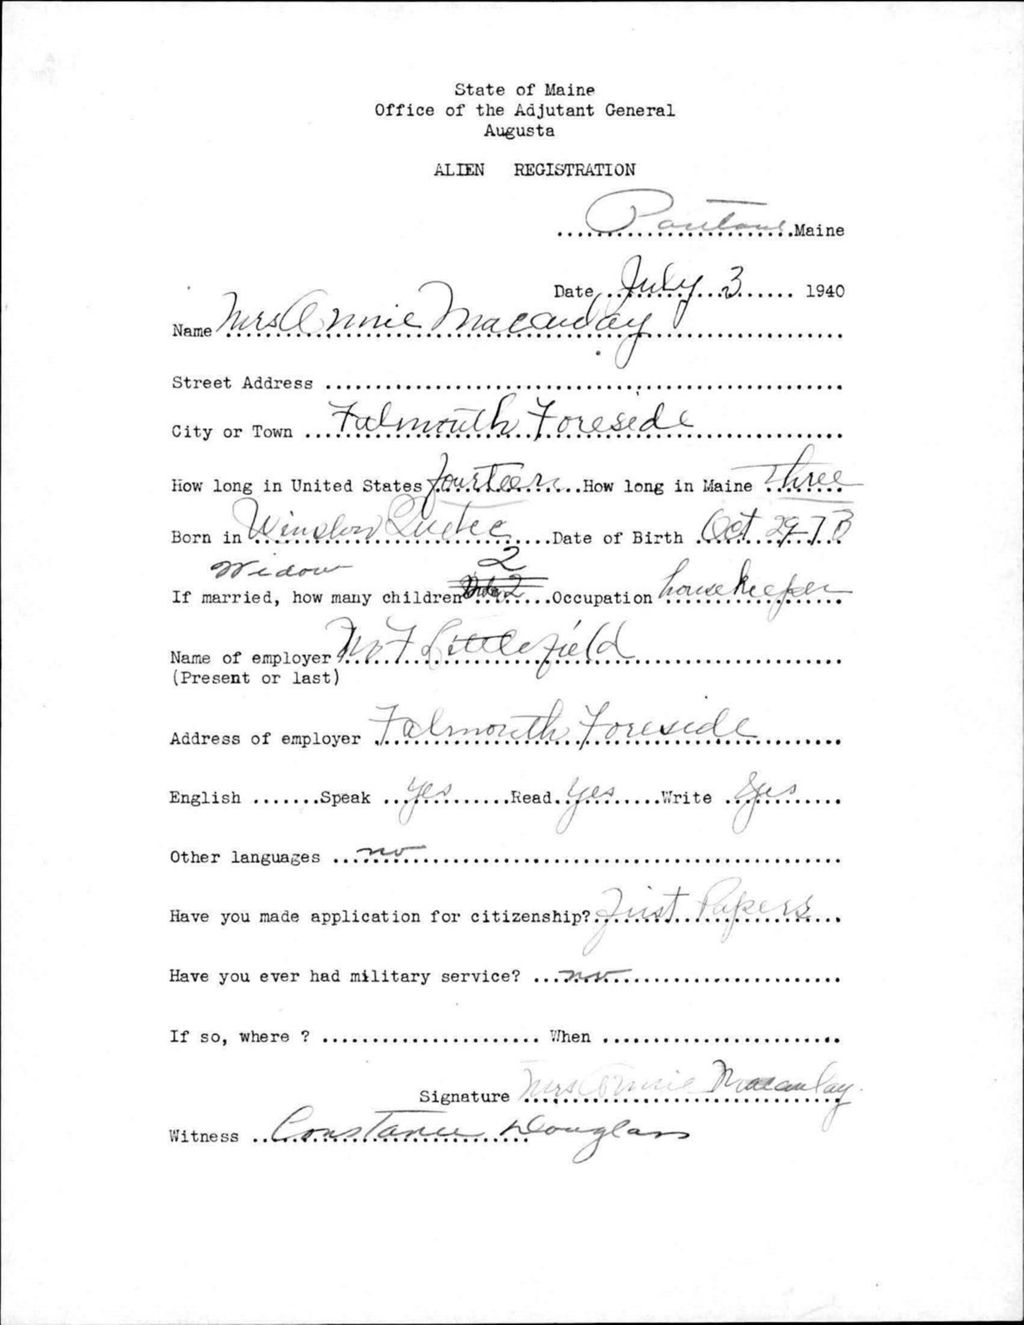 State of Maine
Office of the Adjutant General
Augusta
ALIEN REGISTRATION
Portland Maine
Date July 3 1940
Name Mrs Annie Macaulay
Street Address
City or Town Falmouth Foreside
How long in United States fourteen How long in Maine Three
Born in Winslow Quebec Date of Birth Oct 29-73
Widow 2
If married, how many children Occupation housekeeper
Name of employer Littlefield
(Present or last)
Address of employer Falmouth Foreside
English Speak yes Read yes Write yes
Other languages no
Have you made application for citizenship? First Papers
Have you ever had military service? no
If so, where ? When
Signature Mrs Annie Macaulay
Witness Constance Douglass